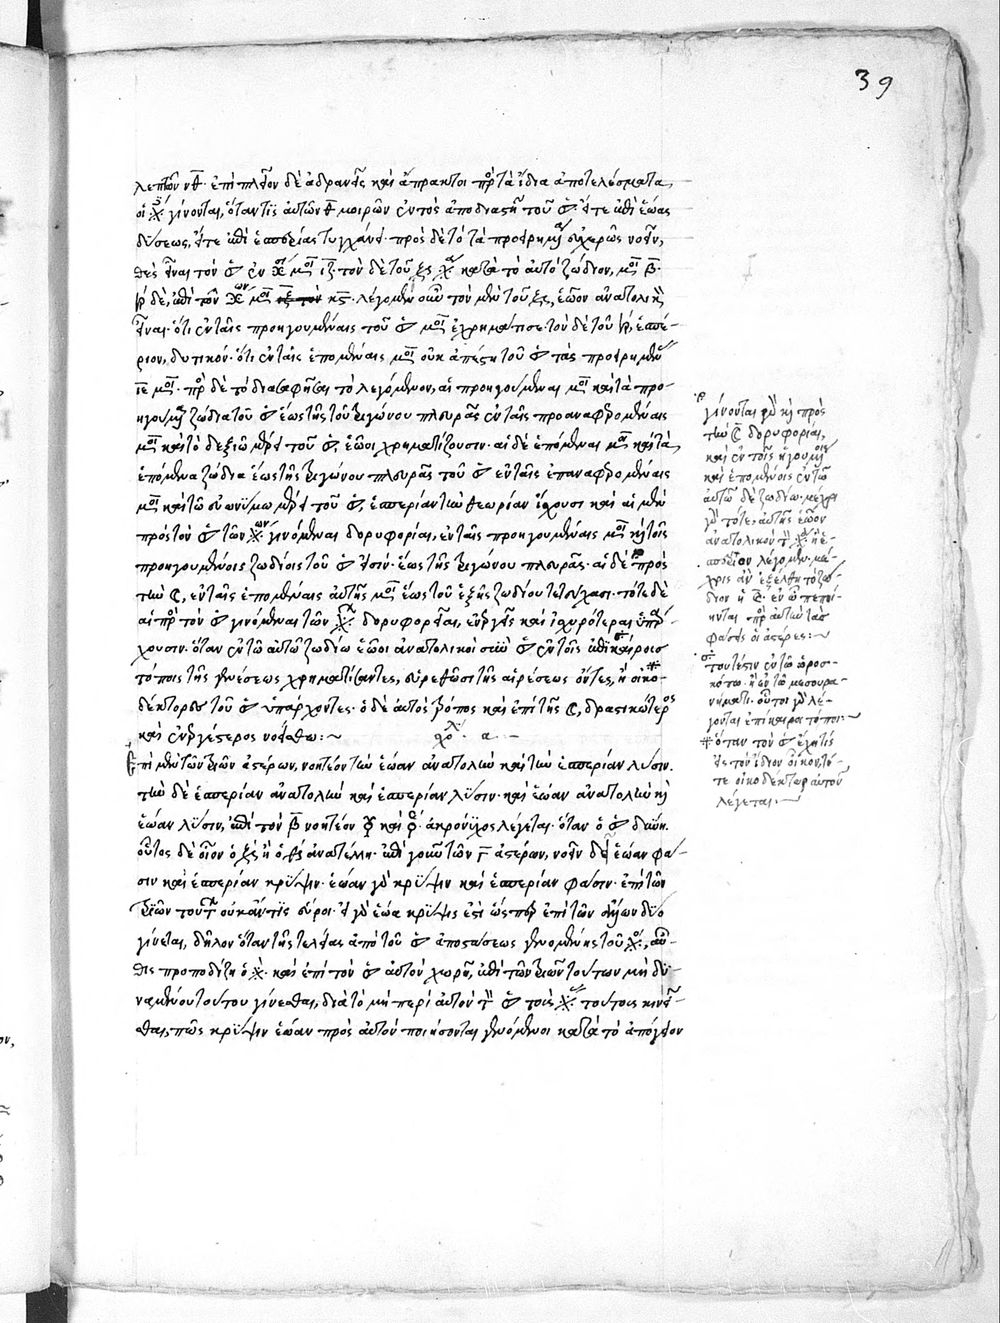 39
λεπτῶν νθ· ἐπιπλεῖον δὲ ἀδρανεῖς καὶ ἄπρακτοι πρὸς τὰ ἴδια ἀποτελέσματα
οἱ γίνονται, ὅταν τῆς αὐτῶν θ μοιρῶν ἐντὸς ἀποδιαστῇ τοῦ εἴτε ἐπὶ ἑῴας
δύσεως, εἴτε ἐπὶ ἑσπερίας τυγχάνει· πρὸς δὲ τὸ τὰ προειρημένα εὐχερῶς νοεῖν,
θὲς εἶναι τὸν ἐν μοι ιζ τὸν δὲ τοῦ κατὰ τὸ αὐτὸ ζώδιον, μοι β·
δὲ, ἐπὶ τῶν μοι κς· λέγομεν οὖν τὸν μὲν τοῦ ἑῷον ἀνατολικὸν
εἶναι· ὅτι ἐν ταῖς προηγουμέναις τοῦ μοι ἐχρημάτισε· τὸν δὲ τοῦ ἑσπέ-
ριον, δυτικόν· ὅτι ἐν ταῖς ἑπομέναις μοι οὐκ ἀπέστη τοῦ τὰς προειρημένας
ιε μοι· πρὸς δὲ τὸ διασαφῆσαι τὸ λεγόμενον, αἱ προηγούμεναι μοι καὶ τὰ προ-
ηγούμενα ζώδια τοῦ ἕως τῆς τοῦ τριγώνου πλευρᾶς ἐν ταῖς προαναφερομέναις
μοι καὶ τὸ δεξιῷ μέρει τοῦ ἑῷοι χρηματίζουσιν· αἱ δὲ ἑπόμεναι μοι καὶ τὰ
ἑπόμενα ζώδια ἕως τῆς τριγώνου πλευρᾶς τοῦ ἐν ταῖς ἐπαναφερομέναις
μοι καὶ τῷ εὐωνύμῳ μέρει τοῦ ἑσπερίαν τὴν θεωρίαν ἴσχουσι καὶ αἱ μὲν
πρὸς τὸν τῶν γινόμεναι δορυφορίαι, ἐν ταῖς προηγουμέναις μοι καὶ τοῖς
προηγουμένοις ζωδίοις τοῦ εἰσὶν· ἕως τῆς τριγώνου πλευρᾶς· αἱ δὲ πρὸς
τὴν ἐν ταῖς ἑπομέναις αὐτῆς μοι ἕως τοῦ ἑξῆς ζωδίου τετεύχασι· τότε δὲ
αἱ πρὸς τὸν γινόμεναι τῶν δορυφορίαι, ἐνεργεῖς καὶ ἰσχυρότεραι ὑπάρ-
χουσιν· ὅταν ἐν τῷ αὐτῷ ζωδίῳ ἑῷοι ἀνατολικοὶ σὺν ἐν τοῖς ἐπικαίροις
τόποις τῆς γενέσεως χρηματίζοντες, εὑρεθῶσι τῆς αἱρέσεως ὄντες, ἢ οἰκο-
δέκτορες τοῦ ὑπάρχοντες· ὁ δὲ αὐτὸς τρόπος καὶ ἐπὶ τῆς δραστικώτερος
καὶ ἐνεργέστερος νοείσθω:~
σχόλ· α·—
Ἐπὶ μὲν τῶν τριῶν ἀστέρων, νοητέον τὴν ἑῴαν ἀνατολὴν καὶ τὴν ἑσπερίαν δύσιν·
τὴν δὲ ἑσπερίαν ἀνατολὴν καὶ ἑσπερίαν δύσιν· καὶ ἑῴαν ἀνατολὴν καὶ
ἑῴαν δύσιν, ἐπὶ τῶν β νοητέον καὶ ἀκρόνυχος λέγεται· ὅταν ὁ δύνῃ·
οὗτος δὲ οἷον ὁ ἢ ὁ ἀνατέλλῃ· ἐπὶ γοῦν τῶν γ ἀστέρων, νοεῖν δεῖ ἑῴαν φά-
σιν καὶ ἑσπερίαν κρύψιν· ἑῴαν γὰρ κρύψιν καὶ ἑσπερίαν φάσιν· ἐπὶ τῶν
τριῶν τούτων οὐκ ἄν τις εὕροι· εἰ γὰρ ἑῴα κρύψις ἐστὶ ὥσπερ ἐπὶ τῶν ἄλλων δύο
γίνεται, δῆλον ὅταν τῆς τελείας ἀπὸ τοῦ ἀποστάσεως γενομένης τοῦ αὖ-
θις προποδίζῃ ὁ καὶ ἐπὶ τὸν αὐτὸν χωρῇ, ἐπὶ τῶν τριῶν τούτων μὴ δυ-
ναμένου τούτου γίνεσθαι, διὰ τὸ μὴ περὶ αὐτὸν τὸν τοὺς τούτους κινεῖ-
σθαι, πῶς κρύψιν ἑῴαν πρὸς αὐτὸν ποιήσονται γενόμενοι κατὰ τὸ ἀπόγειον
γίνονται γὰρ καὶ πρὸς
τὴν δορυφορίαι,
καὶ ἐν τοῖς ἡγουμένοις
καὶ ἑπομένοις ἐν τῷ
αὐτῷ δὲ ζωδίῳ· μέχρι
γὰρ τότε, αὐτῆς ἑῷον
ἀνατολικὸν ἢ ἑ-
σπέριον λέγομεν· μέ-
χρις ἂν ἐξέλθῃ τὸ ζώ-
διον ἐν ᾧ πεποί-
ηνται πρὸς αὐτὴν τὰς
φάσεις οἱ ἀστέρες:~
τουτέστιν ἐν τῷ ὡροσ-
κόπῳ· ἢ ἐν τῷ μεσουρα-
νήματι· οὗτοι γὰρ λέ-
γονται ἐπίκαιροι τόποι:~
ὅταν τὸν ἔχῃ τις
εἰς τὸν ἴδιον οἶκον, τό-
τε οἰκοδέκτωρ αὐτοῦ
λέγεται·~